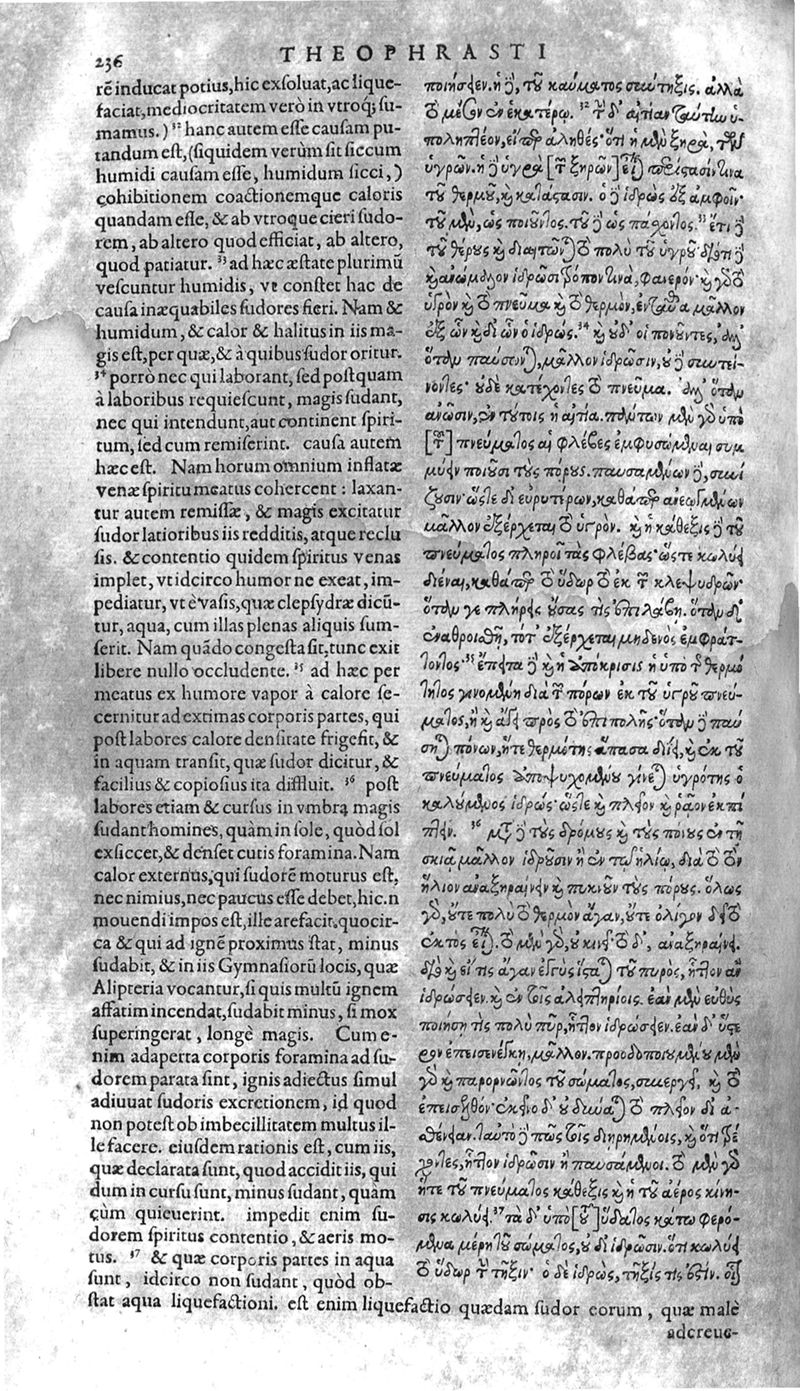 236
THEOPHRASTI
rē inducat potius, hic exsoluat, ac lique-
faciat, mediocritatem verò in vtroq; su-
mamus.) ³² hanc autem esse causam pu-
tandum est, (siquidem verùm sit siccum
humidi causam esse, humidum sicci,)
cohibitionem coactionemque caloris
quandam esse, & ab vtroque cieri sudo-
rem, ab altero quod efficiat, ab altero,
quod patiatur. ³³ ad hæc æstate plurimū
vescuntur humidis, vt constet hac de
causa inæquabiles sudores fieri. Nam &
humidum, & calor & halitus in iis ma-
gis est, per quæ, & à quibus sudor oritur.
³⁴ porrò nec qui laborant, sed postquam
à laboribus requiescunt, magis sudant,
nec qui intendunt, aut continent spiri-
tum, sed cum remiserint. causa autem
hæc est. Nam horum omnium inflatæ
venæ spiritu meatus cohercent: laxan-
tur autem remissæ, & magis excitatur
sudor latioribus iis redditis, atque reclu
sis. & contentio quidem spiritus venas
implet, vt idcirco humor ne exeat, im-
pediatur, vt è vasis, quæ clepsydræ dicū-
tur, aqua, cum illas plenas aliquis sum-
serit. Nam quādo congesta sit, tunc exit
libere nullo occludente. ³⁵ ad hæc per
meatus ex humore vapor à calore se-
cernitur ad extimas corporis partes, qui
post labores calore densitate frigefit, &
in aquam transit, quæ sudor dicitur, &
facilius & copiosius ita diffluit. ³⁶ post
labores etiam & cursus in vmbra magis
sudant homines, quàm in sole, quòd sol
exsiccet, & denset cutis foramina. Nam
calor externus, qui sudorē moturus est,
nec nimius, nec paucus esse debet, hic. n
mouendi impos est, ille arefacit. quocir-
ca & qui ad ignē proximus stat, minus
sudabit, & in iis Gymnasiorū locis, quæ
Alipteria vocantur, si quis multū ignem
affatim incendat, sudabit minus, si mox
superingerat, longè magis. Cum e-
nim adaperta corporis foramina ad su-
dorem parata sint, ignis adiectus simul
adiuuat sudoris excretionem, id quod
non potest ob imbecillitatem multus il-
le facere. eiusdem rationis est, cum iis,
quæ declarata sunt, quod accidit iis, qui
dum in cursu sunt, minus sudant, quàm
cùm quieuerint. impedit enim su-
dorem spiritus contentio, & aeris mo-
tus. ³⁷ & quæ corporis partes in aqua
sunt, idcirco non sudant, quòd ob-
stat aqua liquefactioni. est enim liquefactio quædam sudor eorum, quæ malè
adcreue-
ποιήσειεν. ἡ δὲ, τοῦ καύματος σύντηξις. ἀλλὰ
τὸ μέσον ἐν ἑκατέρῳ. ³² τὴν δ' αἰτίαν ταύτην ὑ-
πολητέον, εἴπερ ἀληθές· ὅτι ἡ μὲν ξηρὰ, τῶν
ὑγρῶν. ἡ δὲ ὑγρὰ [τῶν ξηρῶν] εἶναι
τοῦ θερμοῦ, καὶ κατάστασιν. ὁ δὲ ἱδρὼς ἐξ ἀμφοῖν·
τοῦ μὲν, ὡς ποιοῦντος. τοῦ δὲ ὡς πάσχοντος. ³³ ἔτι δὲ
τοῦ θέρους καὶ διαιτῶνται τὸ πολὺ τοῦ ὑγροῦ
καὶ φανερόν· καὶ γὰρ τὸ
ὑγρὸν καὶ τὸ πνεῦμα καὶ τὸ θερμὸν, ἐνταῦθα μᾶλλον
ἐξ ὧν καὶ δι' ὧν ὁ ἱδρώς. ³⁴ καὶ οὐδ' οἱ πονοῦντες, ἀλλ'
ὅταν παύσωνται, μᾶλλον ἱδρῶσιν, οὐδὲ συντεί-
νοντες· οὐδὲ κατέχοντες τὸ πνεῦμα. ἀλλ' ὅταν
ἀνῶσιν, ἐν τούτοις ἡ αἰτία. πάντων μὲν γὰρ ὑπὸ
[τοῦ] πνεύματος αἱ φλέβες ἐμφυσώμεναι συμ
μύειν ποιοῦσι τοὺς πόρους. παυσαμένων δὲ,
ὥστε δι' εὐρυτέρων, καθάπερ ἀνεῳγμένων
μᾶλλον ἐξέρχεται τὸ ὑγρόν. καὶ ἡ κάθεξις δὲ τοῦ
πνεύματος πληροῖ τὰς φλέβας· ὥστε κωλύει
διέναι, καθάπερ τὸ ὕδωρ τὸ ἐκ τῶν κλεψυδρῶν·
ὅταν γε πλήρεις οὔσας τὶς ἐπιλάβῃ. ὅταν δὲ
συναθροισθῇ, τότ' ἐξέρχεται μηδενὸς ἐμφράτ-
τοντος· ³⁵ ἔπειτα δὲ καὶ ἡ ἀπόκρισις ἡ ὑπὸ τῆς θερμό
τητος γινομένη διὰ τῶν πόρων ἐκ τοῦ ὑγροῦ πνεύ-
ματος, ἥκει πρὸς τὸ ἐπιπολῆς· ὅταν δὲ παύ
σηται πόνων, ἥτε θερμότης ἅπασα καὶ ἐκ τοῦ
πνεύματος ἀποψυχομένου γίνεται ὑγρότης ὁ
καλούμενος ἱδρώς· ὥστε καὶ πλεῖον καὶ ῥᾷον ἐκπί
πτειν. ³⁶ μετὰ δὲ τοὺς δρόμους καὶ τοὺς πόνους ἐν τῇ
σκιᾷ μᾶλλον ἱδροῦσιν ἢ ἐν τῷ ἡλίῳ, διὰ τὸ τὸν
ἥλιον ἀναξηραίνειν καὶ πυκνοῦν τοὺς πόρους. ὅλως
γὰρ, οὔτε πολὺ τὸ θερμὸν ἄγαν, οὔτε ὀλίγον δεῖ τὸ
ἐκτὸς εἶναι. τὸ μὲν γὰρ, οὐ κινεῖ· τὸ δ', ἀναξηραίνει.
διὸ καὶ εἴ τις ἄγαν ἐγγὺς ἵσταται τοῦ πυρὸς, ἧττον ἂν
ἱδρώσειεν. καὶ ἐν τοῖς ἀλειπτηρίοις. ἐὰν μὲν εὐθὺς
ποιήσῃ τὶς πολὺ πῦρ, ἧττον ἱδρώσειεν. ἐὰν δ' ὕστε
ρον ἐπεισενέγκῃ, μᾶλλον. προοδοποιουμένου μὲν
γὰρ καὶ παρορμῶντος τοῦ σώματος, συνεργεῖ, καὶ τὸ
ἐπεισελθόν· ἐκεῖνο δ' οὐ δύναται τὸ πλεῖον δι' ἀ-
σθένειαν. ταὐτὸ δὲ πῶς τοῖς διῃρημένοις, καὶ ὅτι τρέ
χοντες, ἧττον ἱδρῶσιν ἢ παυσάμενοι. τὸ μὲν γὰρ
ἥτε τοῦ πνεύματος κάθεξις καὶ ἡ τοῦ ἀέρος κίνη-
σις κωλύει. ³⁷ τὰ δ' ὑπὸ [τοῦ] ὕδατος κάτω φερό-
μενα μέρη τοῦ σώματος, οὐ διιδρῶσιν. ὅτι κωλύει
τὸ ὕδωρ τὴν τῆξιν· ὁ δὲ ἱδρὼς, τῆξίς τις ἐστίν.